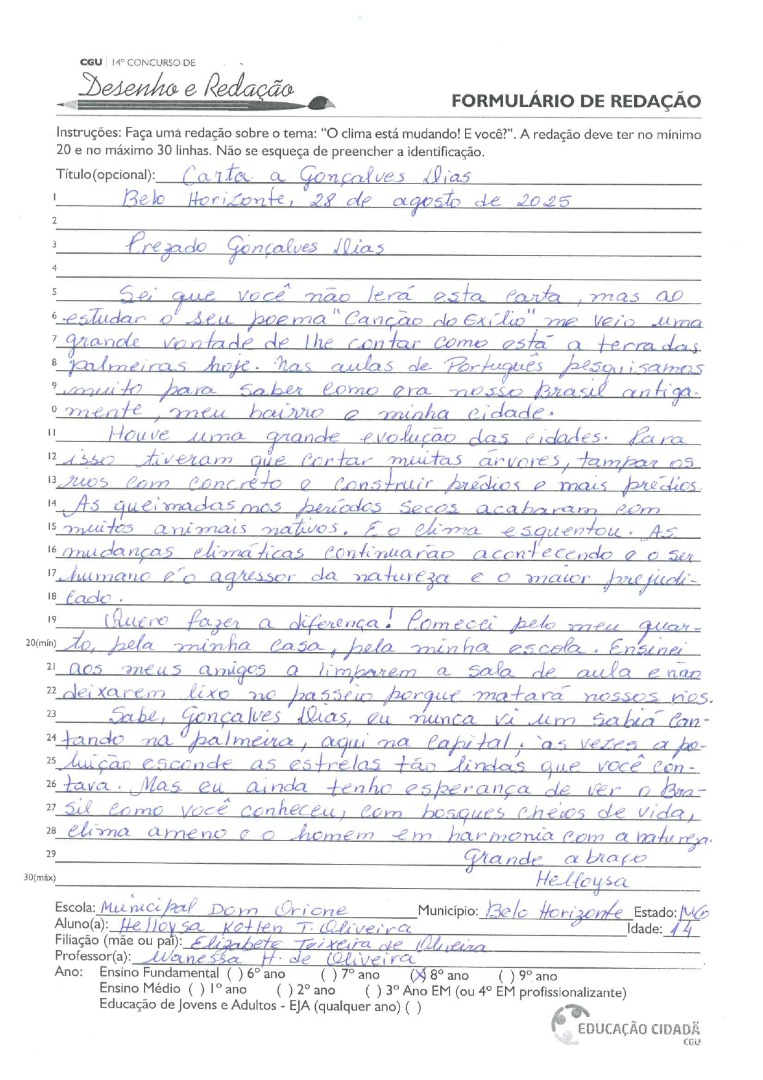 CGU | 14º CONCURSO DE
Desenho e Redação
FORMULÁRIO DE REDAÇÃO
Instruções: Faça uma redação sobre o tema: "O clima está mudando! E você?". A redação deve ter no mínimo
20 e no máximo 30 linhas. Não se esqueça de preencher a identificação.
Título(opcional): Carta a Gonçalves Dias
1 Belo Horizonte, 28 de agosto de 2025
2
3 Prezado Gonçalves Dias
4
5 Sei que você não lerá esta carta, mas ao
6 estudar o seu poema "Canção do Exílio" me veio uma
7 grande vontade de lhe contar como está a terra das
8 palmeiras hoje. Nas aulas de Português pesquisamos
9 muito para saber como era nosso Brasil antiga-
0 mente, meu bairro e minha cidade.
11 Houve uma grande evolução das cidades. Para
12 isso tiveram que cortar muitas árvores, tampar os
13 rios com concreto e construir prédios e mais prédios.
14 As queimadas nos períodos secos acabaram com
15 muitos animais nativos. E o clima esquentou. As
16 mudanças climáticas continuarão acontecendo e o ser
17 humano é o agressor da natureza e o maior prejudi-
18 cado.
19 Quero fazer a diferença! Comecei pelo meu quar-
20(mín) to, pela minha casa, pela minha escola. Ensinei
21 aos meus amigos a limparem a sala de aula e não
22 deixarem lixo no passeio porque matará nossos rios.
23 Sabe, Gonçalves Dias, eu nunca vi um sabiá can-
24 tando na palmeira, aqui na capital; às vezes a po-
25 luição esconde as estrelas tão lindas que você con-
26 tava. Mas eu ainda tenho esperança de ver o Bra-
27 sil como você conheceu, com bosques cheios de vida,
28 clima ameno e o homem em harmonia com a natureza.
29 Grande abraço
30(máx) Helloysa
Escola: Municipal Dom Orione Município: Belo Horizonte Estado: MG
Aluno(a): Helloysa Ketlen T. Oliveira Idade: 14
Filiação (mãe ou pai): Elizabete Teixeira de Oliveira
Professor(a): Wanessa H. de Oliveira
Ano: Ensino Fundamental ( ) 6º ano ( ) 7º ano (X) 8º ano ( ) 9º ano
Ensino Médio ( ) 1º ano ( ) 2º ano ( ) 3º Ano EM (ou 4º EM profissionalizante)
Educação de Jovens e Adultos - EJA (qualquer ano) ( )
EDUCAÇÃO CIDADÃ
CGU